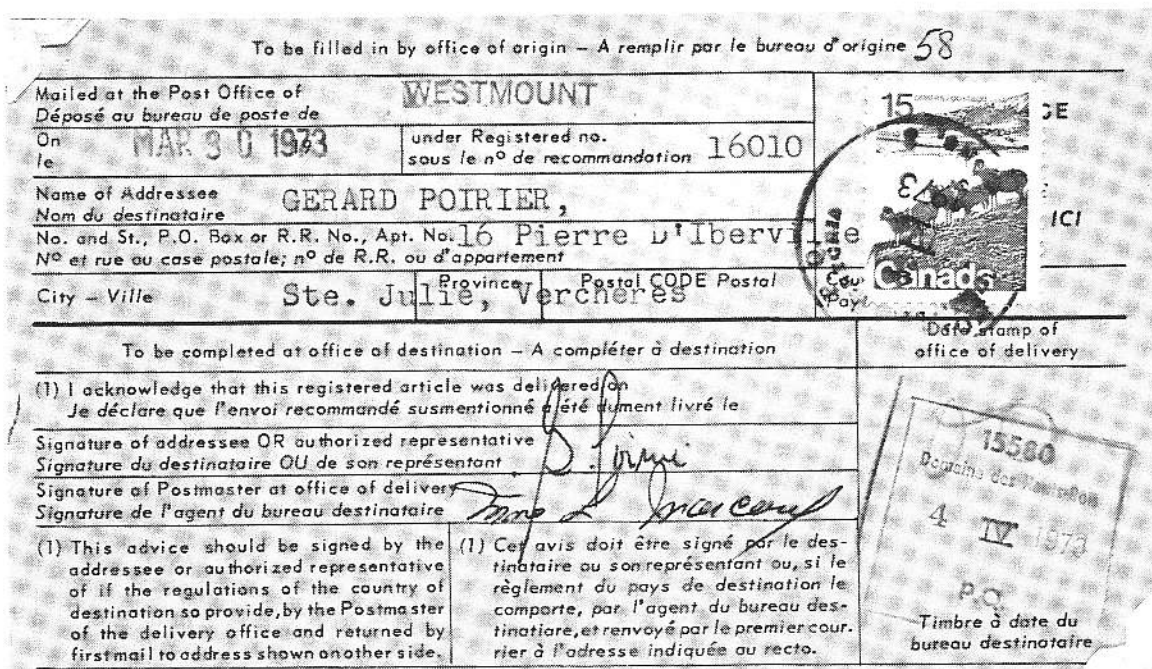 To be filled in by office of origin – A remplir par le bureau d'origine 58
Mailed at the Post Office of
Déposé au bureau de poste de
WESTMOUNT
On
le
MAR 30 1973
under Registered no.
sous le nº de recommandation
16010
Name of Addressee
Nom du destinataire
GERARD POIRIER,
No. and St., P.O. Box or R.R. No., Apt. No.
Nº et rue ou case postale; nº de R.R. ou d'appartement
16 Pierre D'Iberville
City – Ville
Province
Postal CODE Postal
Ste. Julie, Vercheres
15
Canada
ICI
To be completed at office of destination – A compléter à destination
Date stamp of
office of delivery
(1) I acknowledge that this registered article was delivered on
Je déclare que l'envoi recommandé susmentionné a été dument livré le
Signature of addressee OR authorized representative
Signature du destinataire OU de son représentant
Signature of Postmaster at office of delivery
Signature de l'agent du bureau destinataire
15580
4 IV 1973
P.Q.
(1) This advice should be signed by the
addressee or authorized representative
of if the regulations of the country of
destination so provide, by the Postmaster
of the delivery office and returned by
first mail to address shown on other side.
(1) Cet avis doit être signé par le des-
tinataire ou son représentant ou, si le
règlement du pays de destination le
comporte, par l'agent du bureau des-
tinatiare, et renvoyé par le premier cour.
rier à l'adresse indiquée au recto.
Timbre à date du
bureau destinataire